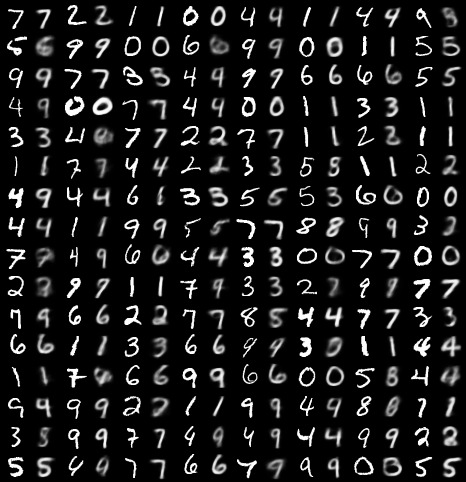 7 7 2 2 1 1 0 0 4 4 1 1 4 4 9
5 6 9 9 0 0 6 9 9 0 0 1 1 5 5
9 9 7 7 3 3 4 4 9 9 6 6 6 6 5 5
4 9 0 0 7 7 4 4 0 0 1 1 3 3 1 1
3 3 4 7 7 2 2 7 7 1 1 2 2 1 1
1 1 7 7 4 4 2 2 3 3 5 8 1 1 2 2
4 9 4 4 6 6 3 3 5 5 5 3 6 0 0 0
4 4 1 1 9 9 5 5 7 7 8 8 9 9 3 3
7 9 4 9 6 6 4 4 3 3 0 0 7 7 0 0
2 9 9 1 1 7 9 3 3 2 7 9 9 7 7
7 9 6 6 2 2 7 7 8 5 4 4 7 7 3 3
6 6 1 1 3 3 6 6 9 9 3 0 1 1 4 4
1 1 7 6 6 9 9 6 6 0 0 5 8 4 4
9 4 9 9 2 2 1 1 9 9 4 9 8 0 7 1
3 5 9 9 7 7 4 9 4 9 4 4 9 9 2 2
5 5 4 9 7 7 6 6 7 9 9 9 0 5 5